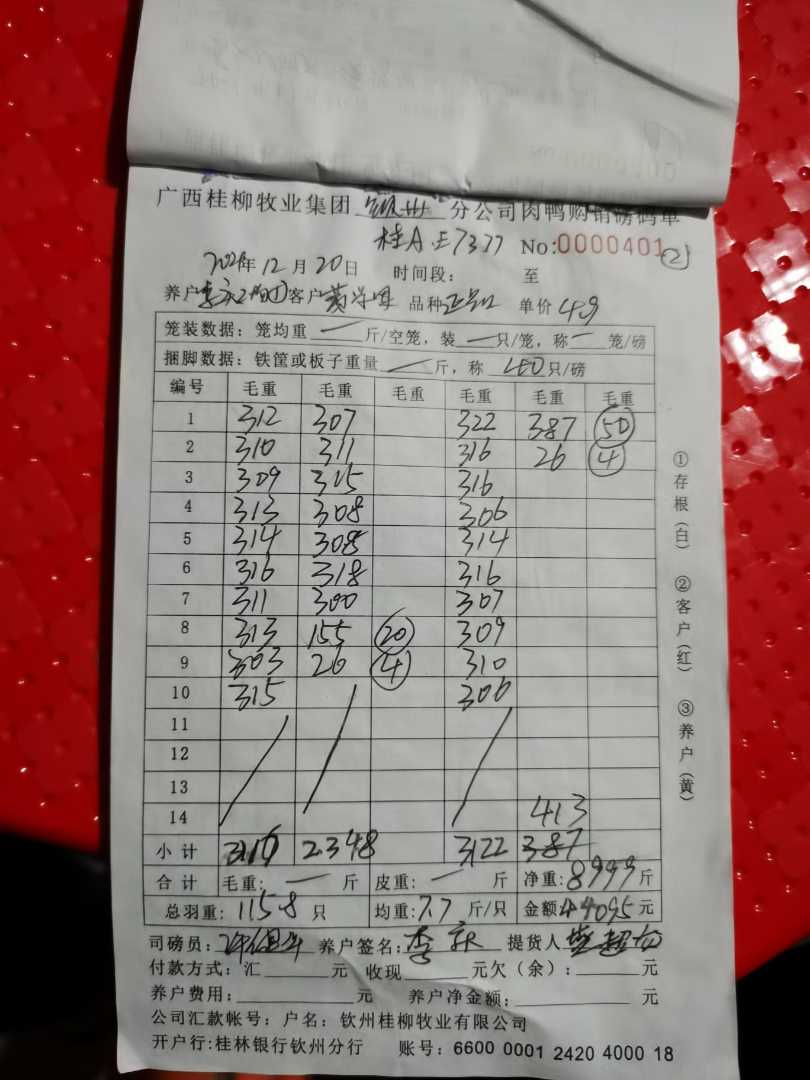 广西桂柳牧业集团 钦州 分公司肉鸭购销磅码单
桂A·E7377 No:0000401 ②
2024年12月20日 时间段: 至
养户 客户 品种 单价 4.9
笼装数据: 笼均重 — 斤/空笼, 装 — 只/笼, 称 — 笼/磅
捆脚数据: 铁筐或板子重量 — 斤, 称 40 只/磅
编号 毛重 毛重 毛重 毛重 毛重 毛重
1 312 307 322 387 50
2 310 311 316 26 4
3 309 315 316
4 313 308 306
5 314 308 314
6 316 318 316
7 311 300 307
8 313 155 20 309
9 303 26 4 310
10 315 306
11
12
13
14 413
小计 3116 2348 3122 387
合计 毛重: — 斤 皮重: — 斤 净重: 8999 斤
总羽重: 1158 只 均重: 7.7 斤/只 金额: 44095 元
司磅员: 养户签名: 李 提货人:
付款方式: 汇 元 收现 元欠(余): 元
养户费用: 元 养户净金额: 元
公司汇款帐号: 户名: 钦州桂柳牧业有限公司
开户行:桂林银行钦州分行 账号: 6600 0001 2420 4000 18
①存根(白) ②客户(红) ③养户(黄)